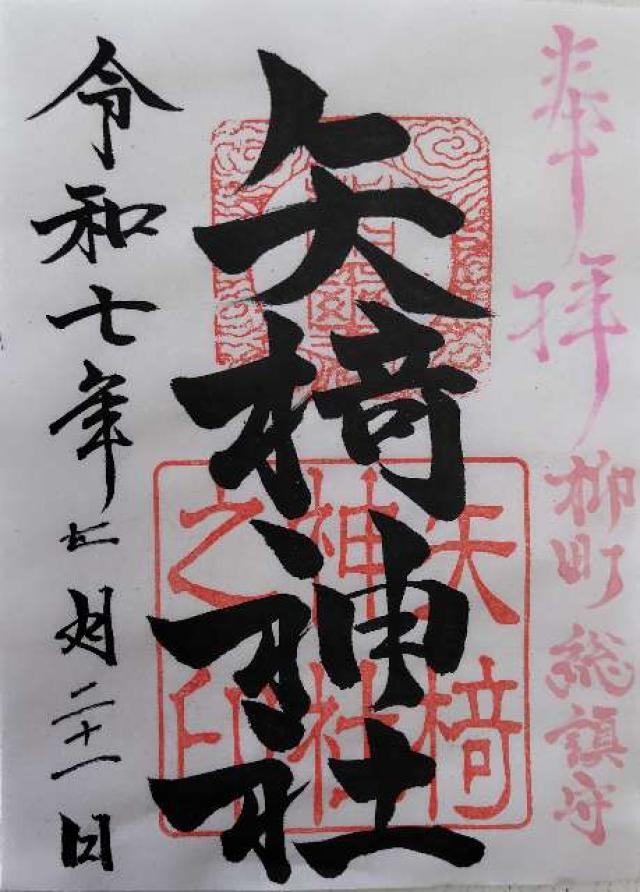 奉拝
柳町総鎮守
矢椅神社
矢椅神社之印
令和七年七月二十一日